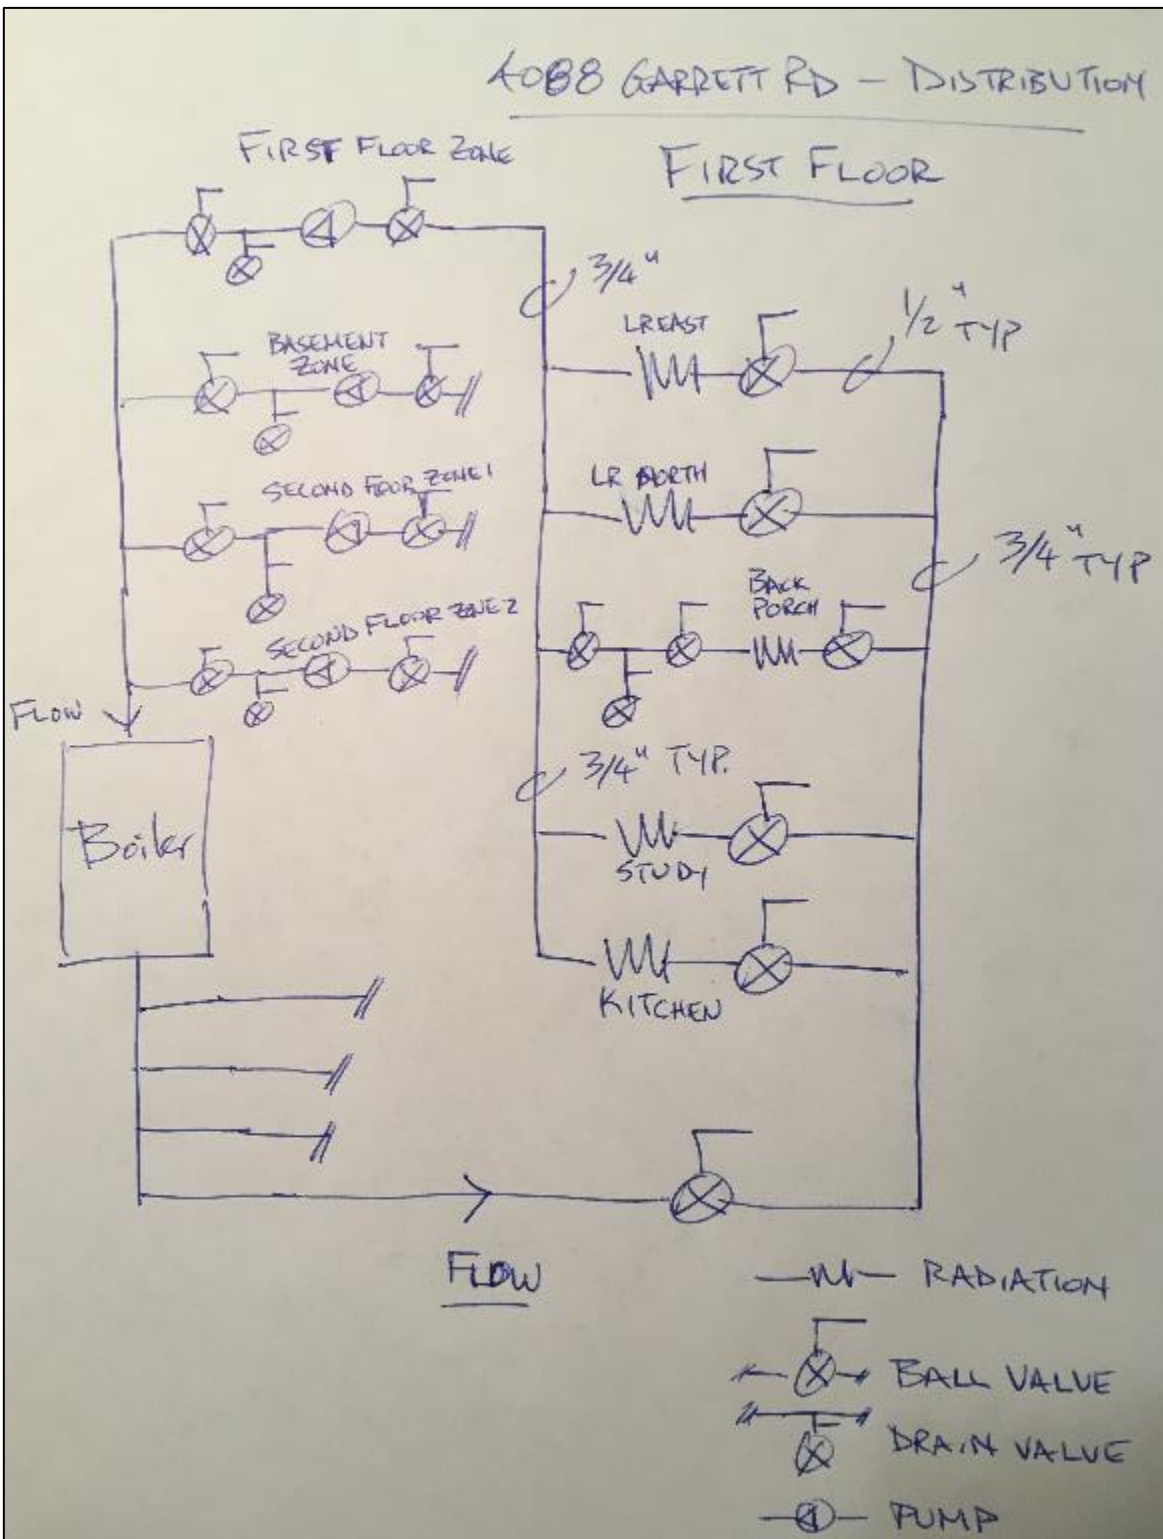 4088 GARRETT RD — DISTRIBUTION
FIRST FLOOR
FIRST FLOOR ZONE
3/4"
1/2" TYP
LR EAST
BASEMENT
ZONE
SECOND FLOOR ZONE 1
LR NORTH
3/4" TYP
BACK
PORCH
SECOND FLOOR ZONE 2
FLOW
3/4" TYP.
Boiler
STUDY
KITCHEN
FLOW
RADIATION
BALL VALVE
DRAIN VALVE
PUMP